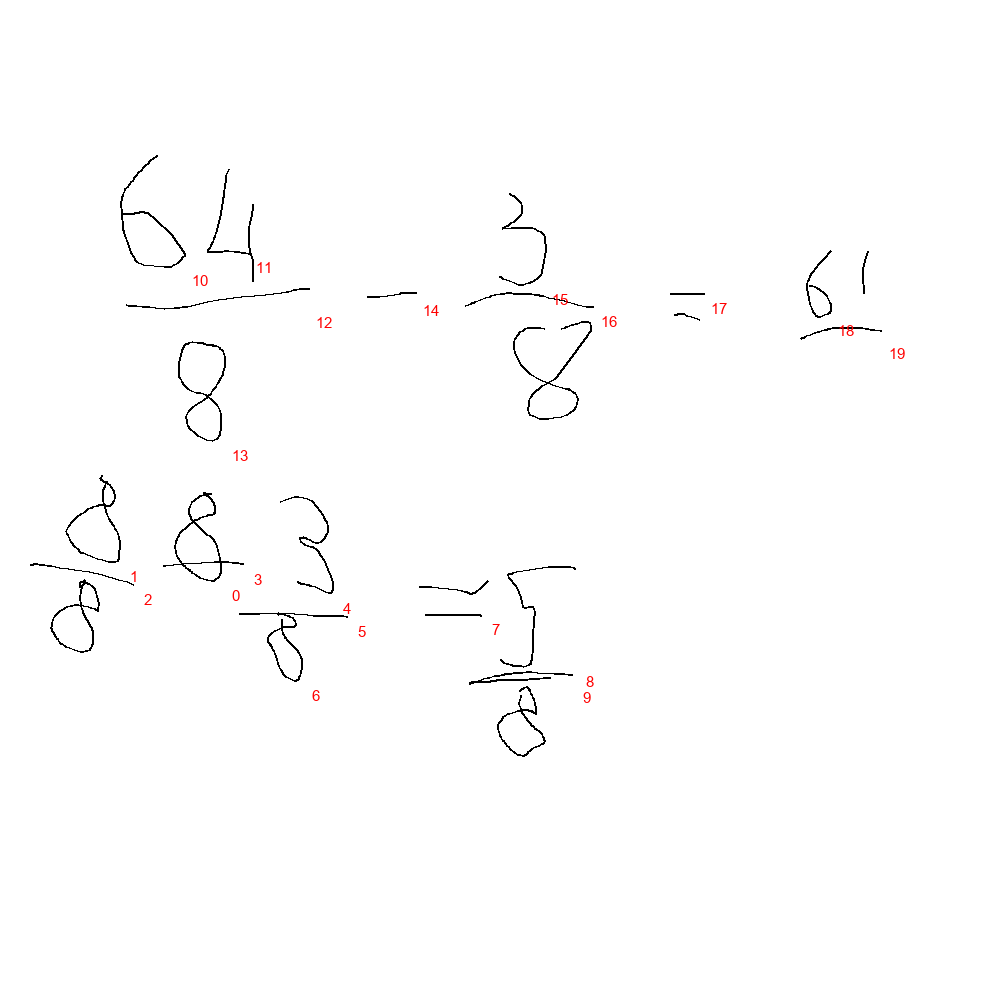 64/8 - 3/8 = 61/
10 11 12 13 14 15 16 17 18 19
8/8 8 - 3/8 = 5/8
1 2 3 0 4 5 6 7 8 9